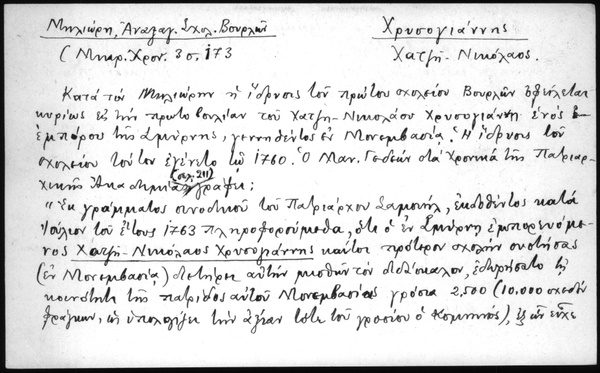 Μηλιώρη, Ἀναγαγ. Σχολ. Βουρλῶν
Χρυσογιάννης
(Μικρ. Χρον. 3 σ. 173
Χατζῆ-Νικόλαος.
Κατὰ τὸν Μηλιώρην ἡ ἵδρυσις τοῦ πρώτου σχολείου Βουρλῶν ὀφείλεται
κυρίως εἰς τὴν πρωτοβουλίαν τοῦ Χατζη-Νικολάου Χρυσογιάννη ἑνὸς
ἐμπόρου τῆς Σμύρνης, γεννηθέντος ἐν Μονεμβασίᾳ. Ἡ ἵδρυσις τοῦ
σχολείου τούτου ἐγένετο τῷ 1760. Ὁ Μαν. Γεδεὼν στὰ Χρονικὰ τῆς Πατριαρ-
χικῆς Ἀκαδημίας (σελ. 211) γράφει:
"Ἐκ γράμματος συνοδικοῦ τοῦ Πατριάρχου Σαμουὴλ, ἐκδοθέντος κατὰ
Ἰούλιον τοῦ ἔτους 1763 πληροφορούμεθα, ὅτι ὁ ἐν Σμύρνῃ ἐμπορευόμε-
νος Χατζῆ-Νικόλαος Χρυσογιάννης καίτοι πρότερον σχολὴν συστήσας
(ἐν Μονεμβασίᾳ) διετήρει αὐτὴν μισθῶν τὸν διδάσκαλον, ἐδωρήσατο τῇ
κοινότητι τῆς πατρίδος αὐτοῦ Μονεμβασίας γρόσια 2,500 (10.000 σχεδὸν
φράγκων, ὡς ὑπολογίζει τὴν ἀξίαν τότε τοῦ γροσίου ὁ Κομνηνός), ἐξ ὧν εἶχε